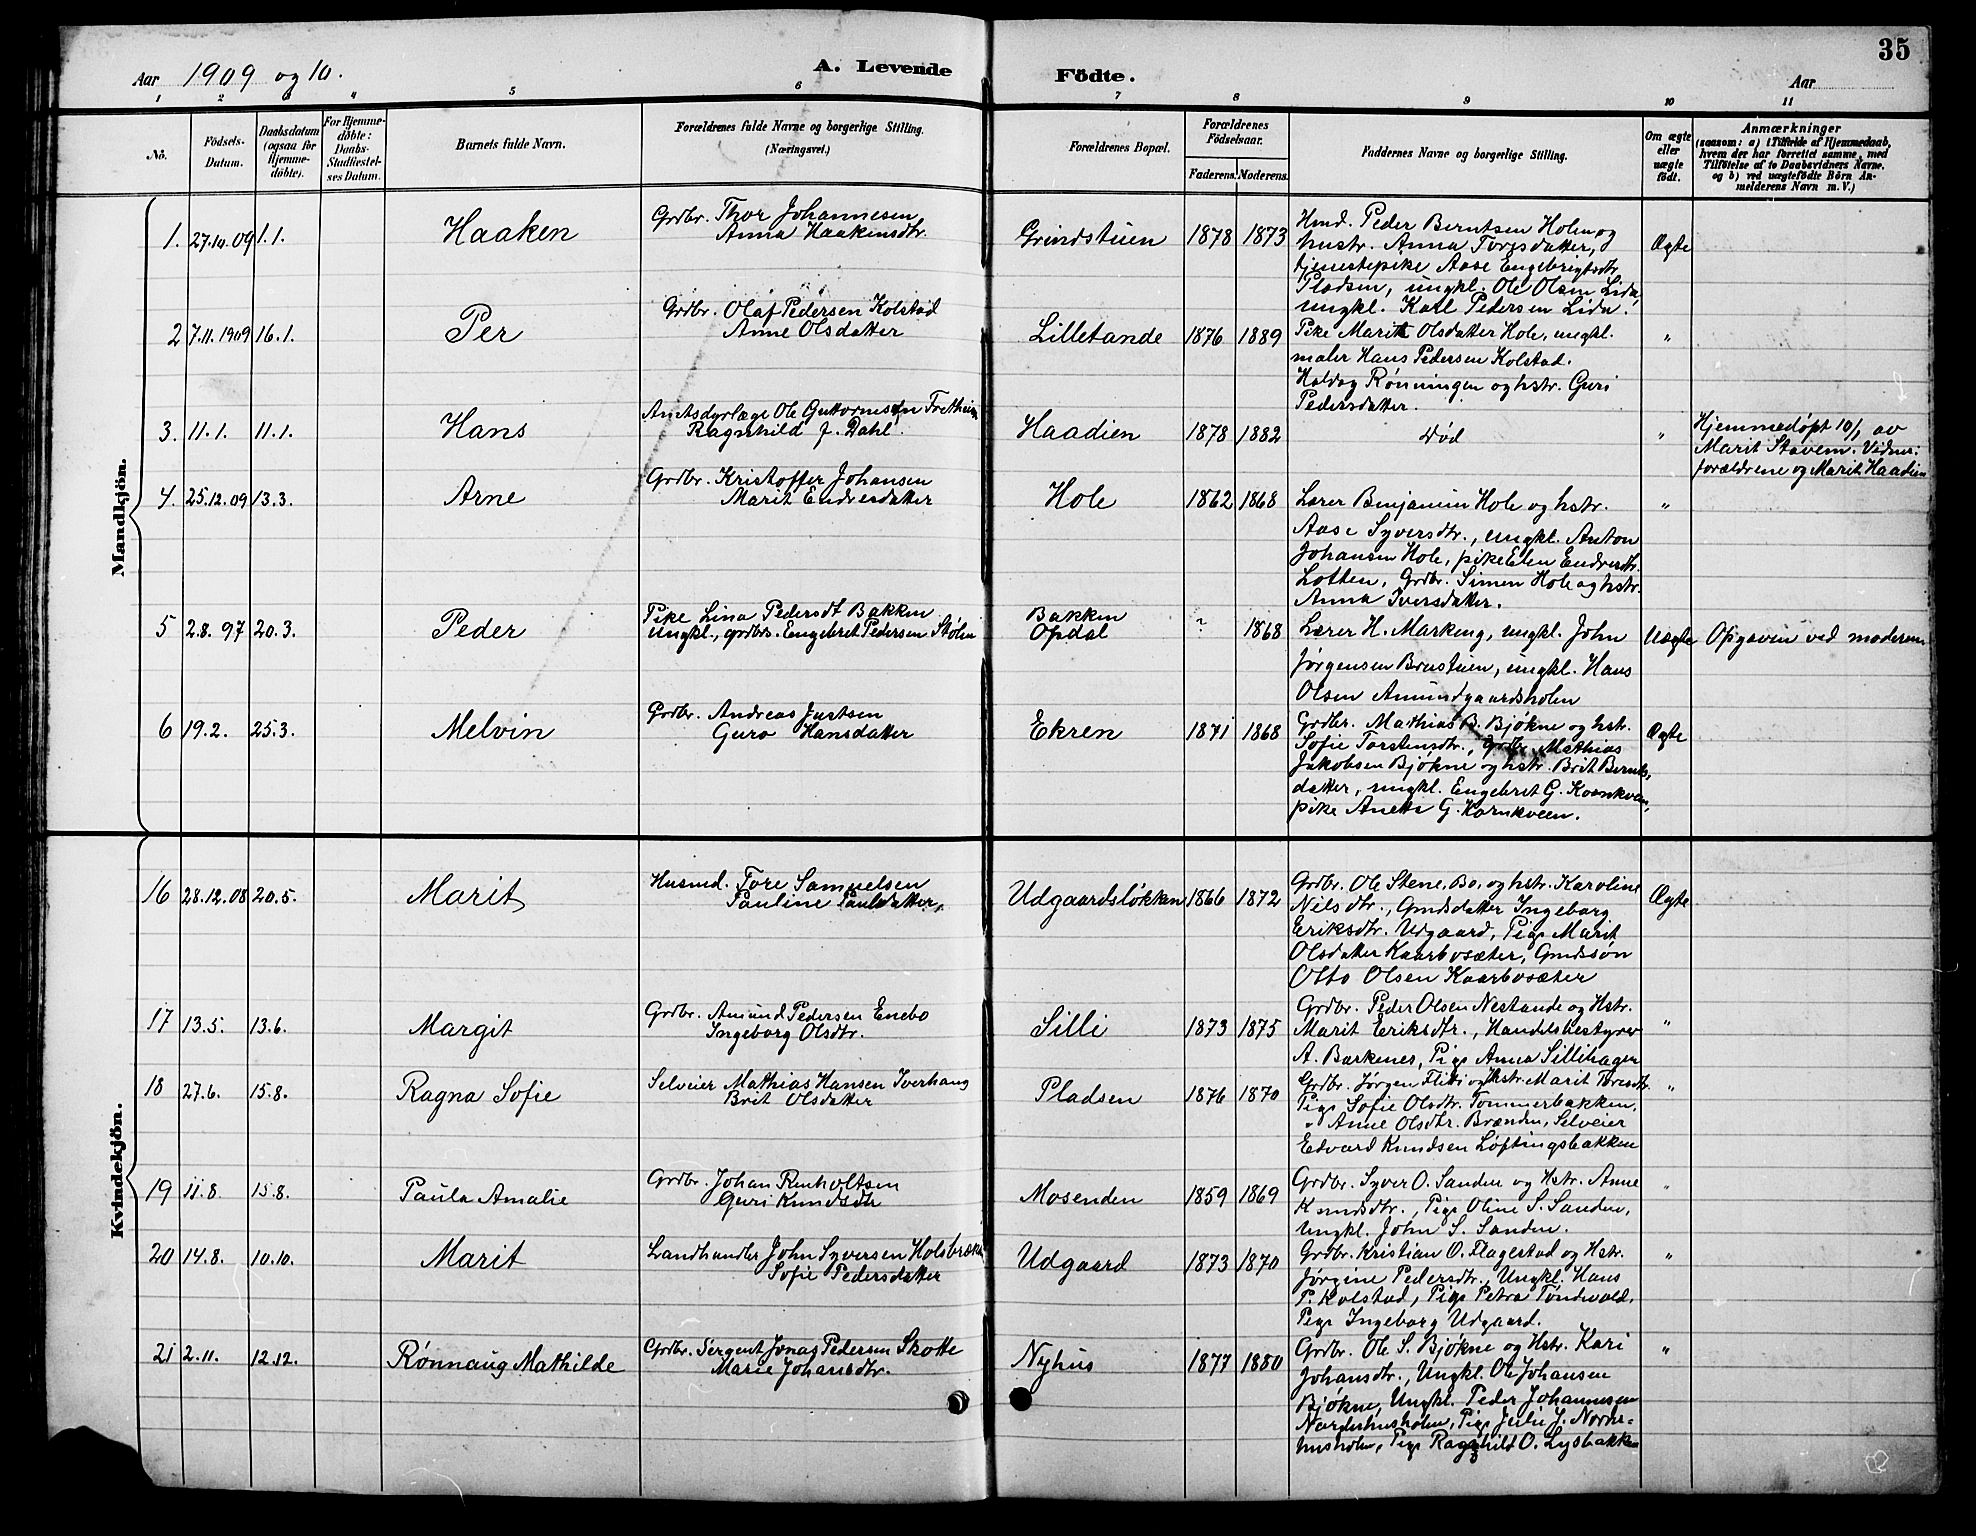 35
Aar 1909 og 10.
A. Levende Födte.
Aar
1 2 3 4 5 6 7 8 9 10 11
No.
Födsels-Datum.
Daabsdatum (ogsaa for Hjemme-døbte).
For Hjemme-døbte: Daabs-Stadfæstel-ses Datum.
Barnets fulde Navn.
Forældrenes fulde Navne og borgerlige Stilling. (Næringsvei.)
Forældrenes Bopæl.
Forældrenes Födselsaar.
Faderens. Moderens.
Faddernes Navne og borgerlige Stilling.
Om ægte eller uægte födt.
Anmærkninger
(saasom: a) i Tilfælde af Hjemmedaab,
hvem der har forrettet samme, med
Tilföielse af to Daabsvidners Navne.
og b) ved uægtefödte Börn An-
melderens Navn m. V.)
Mandkjön.
1. 27.10.09 1.1. Haaken
Grdbr. Thor Johannesen
Anna Haakensdtr.
Grindstuen 1878 1873
Hmd. Peder Berntsen Holen og
hustr. Anna Toresdatter,
tjenestepike Aase Engebrigtsdtr.
Pladsen, ungkl. Ole Olsen Lida,
ungkl. Karl Pedersen Lida.
Ægte
2 7.11.1909 16.1. Per
Grdbr. Olaf Pedersen Kolstad
Anne Olsdatter
Lilletande 1876 1889
Pike Marit Olsdatter Hole, ungkl.
maler Hans Pedersen Kolstad.
Haldog Rønningen og hstr. Guri
Pedersdatter.
"
3. 11.1. 11.1. Hans
Amtsdyrlæge Ole Guttormsen Fretheim
Ragnhild f. Dahl.
Haadien 1878 1882
Død
"
Hjemmedøpt 10/1 av
Marit Stavem. Vidner:
forældrene og Marit Haadien
4. 25.12.09 13.3. Arne
Grdbr. Kristoffer Johansen
Marit Endresdatter
Hole 1862 1868
Lærer Benjamin Hole og hstr.
Aase Syversdtr., ungkl. Anton
Johansen Hole, pike Elen Endresdtr.
Lotten, Grdbr. Simen Hole og hstr.
Anna Iversdatter.
"
5 2.8.97 20.3. Peder
Pike Lina Pedersdt Bakken
Ungkl., grdbrs. Engebret Pedersen Stølen
Bakken
Opdal
? 1868
Lærer H. Markeng, ungkl. John
Jørgensen Brustuen, ungkl. Hans
Olsen Amundgaardsholen
Uægte
Opgaven ved moderen
6 19.2. 25.3. Melvin
Grdbr. Andreas Justsen
Guro Hansdatter
Ekren 1871 1868
Grdbr. Mathias B. Bjøkne og hstr.
Sofie Torstensdtr., Grdbr. Mathias
Jakobsen Bjøkne og hstr. Brit Bernts-
datter, ungkl. Engebret G. Kornkveen,
pike Anette G. Kornkveen.
Ægte
Kvindekjön.
16 28.12.08 20.5. Marit
Husmd. Tore Samuelsen
Pauline Paulsdatter,
Udgaardsløkken 1866 1872
Grdbr. Ole Stene, Bo. og hstr. Karoline
Nilsdtr., Gmdsdatter Ingeborg
Eriksdtr. Udgaard, Pige Marit
Olsdatter Kaarbosæter, Gmdssøn
Otto Olsen Kaarbosæter
Ægte
17 13.5. 13.6. Margit
Grdbr. Amund Pedersen Enebo
Ingeborg Olsdtr.
Silli 1873 1875
Grdbr. Peder Olsen Nestande og Hstr.
Marit Eriksdtr., Handelsbestyrer
A. Barkenes, Pige Anna Sillihagen
"
18 27.6. 15.8. Ragna Sofie
Selveier Mathias Hansen Iverhaug
Brit Olsdatter
Pladsen 1876 1870
Grdbr. Jørgen Flittie og Hstr. Marit Toresdtr.
Pige Sofie Olsdtr. Tommerbakken,
" Anne Olsdtr. Brænden, Selveier
Edvard Knudsen Løftingsbakken
"
19 11.8 15.8. Paula Amalie
Grdbr. Johan Renholtsen
Guri Knudsdtr
Mosenden 1859 1869
Grdbr. Syver O. Sanden og Hstr. Anne
Knudsdtr., Pige Oline S. Sanden,
Ungkl. John S. Sanden.
"
20 14.8. 10.10. Marit
Landhandler John Syversen Holsbrækken
Sofie Pedersdatter
Udgaard 1873 1870
Grdbr. Kristian O. Flagestad og Hstr.
Jørgine Pedersdtr., Ungkl. Hans
P. Kolstad, Pige Petra Tøndevold,
Pige Ingeborg Udgaard.
"
21 2.11. 12.12. Rønnaug Mathilde
Grdbr. Sergent Jonas Pedersen Skotte
Marie Johansdtr.
Nyhus 1877 1880
Grdbr. Ole S. Bjøkne og Hstr. Kari
Johansdtr., Ungkl. Ole Johansen
Bjøkne, Ungkl. Peder Johannesen
Nordehusholen, Pige Julie J. Norde-
husholen, Pige Ragnhild O. Lysbakken
"